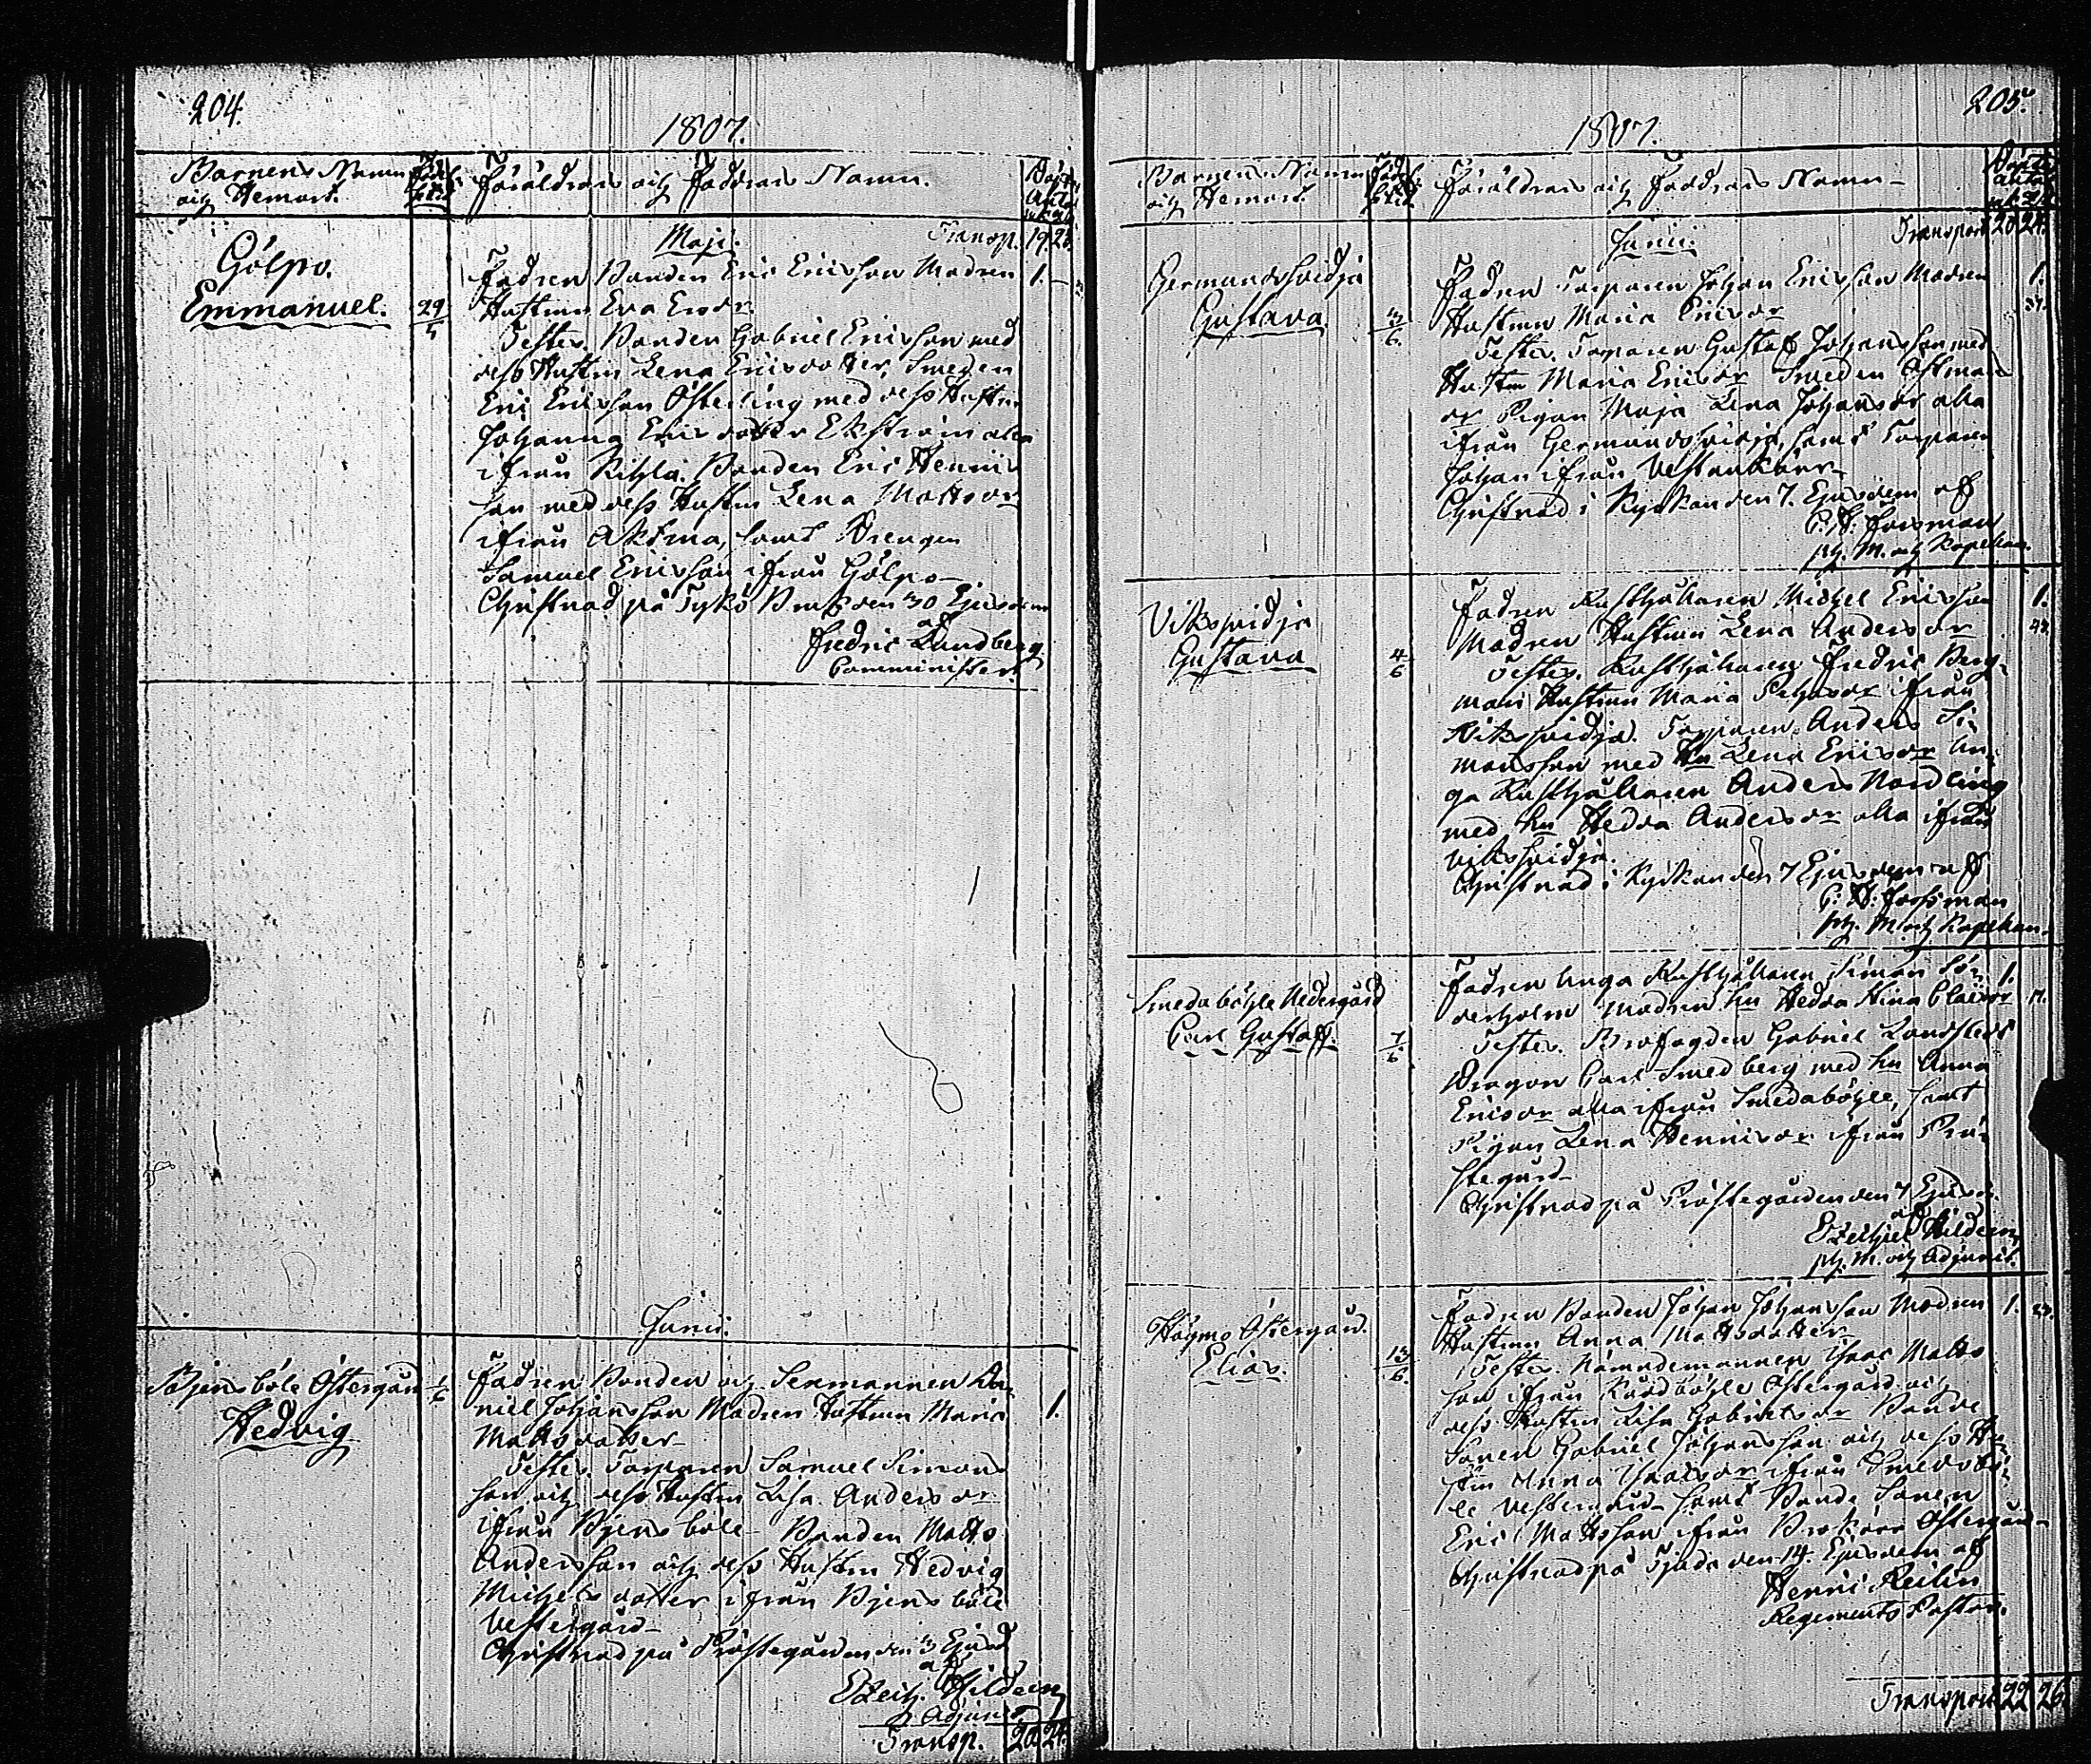 204.
1807.
Barnens Namn
och Hemort.
Föräldrars och Faddrars Namn.
Maji.
Transp. 19. 23.
Gölpo.
Emmanuel.
29
5
Fadren Bonden Eric Ericsson Modren
1.
Hustrun Eva Ersdr.
Testes. Bonden Gabriel Ericsson med
dess Hustru Lena Ericsdotter, Smeden
Eric Ericsson Österling med dess Hustru
Johanna Ericsdotter Ekström alla
ifrån Kihla. Bonden Eric Henrics
son med dess Hustru Lena Mattsdr
ifrån samt Drengen
Samuel Ericsson ifrån Gölpo
Christnad på Tykö Bruk den 30 Ejusdem
af
Fredric Lundberg
Comminister.
Junii.
Böjensböle Östergård
Hedvig
1
6
Fadren Bonden och Sexmannen Da-
niel Johansson Modren Hustrun Maria
1.
Mattsdotter
Testes. Torparen Samuel Simons
son och dess Hustru Lisa Andersdr
ifrån Bjensböle Bonden Matts
Andersson och dess Hustru Hedvig
Michelsdotter ifrån Bjensböle
Vestergård
Christnad på Prostegården den 3 Ejusd
af
Ezech. Hildeen
Adjunct
Transp. 20. 24.
205.
1807.
Barnens Namn
och Hemort.
Föräldrars och Faddrars Namn
Junii.
Transport 20 24.
Germundssvidja
Gustava
3
6.
Fadren Torparen Johan Ericsson Modren
1.
Hustrun Maria Ericsdr
Testes. Torparen Gustaf Johansson med
Hustru Maria Ericsdr Smeden Östman
or Pigan Maja Lena Johansdr alla
ifrån Germundssvidja, samt Torparen
Johan ifrån Vestankärr
Christnad i Kyrkan den 7 Ejusdem af
C: H: Forsman
ph. M. och Kapellan.
Viksvidja
Gustava
4
6
Fadren Rusthållaren Michel Ericsson
1.
Modren Hustrun Lena Andersdr
Testes. Rusthållaren Fredric Berg-
man Hustrun Maria ifrån
Viksvidja. Torparen Anders Si-
monsson med Hu Lena Ericsdr Un-
ga Rusthållaren Anders Nordling
med hu Hedda Andersdr alla ifrån
Viksvidja.
Christnad i Kyrkan den 7 Ejusdem af
C: H: Forssman
ph. M och Kapellan.
Smedaböhle Nedergård
Carl Gustaff.
7
6.
Fadren Unga Rusthållaren Simon Sö-
1.
derholm Modren hu Hedda Stina
Testes. Brofogden Gabriel Landstedt
Dragon Carl Smedberg med hu Anna
Ericsdr alla ifrån Smedaböhle, samt
Pigan Lena Henricsdr ifrån Pro-
stegård
Christnad på Prostegården den 7 Ejusd.
af
Ezechiel Hildeen
ph. M. och Adjunct.
Högmo Östergård.
Elias.
13
6.
Fadren Bonden Johan Johansson Modren
1.
Hustrun Anna Mattsdotter
Testes. Nämndemannen Isaac Matts
son ifrån Nordböhle Östergård och
dess Hustru Lisa Gabrielsdr Bonde
Sonen Gabriel Johansson och dess Hu-
stru Anna Isacsdr ifrån Smedsbö-
le Vestergård samt Bonde Sonen
Eric Mattsson ifrån Brokärr Östergård
Christnad på den 14. Ejusdem af
Henric Reilin
Regements Pastor.
Transport 22 26